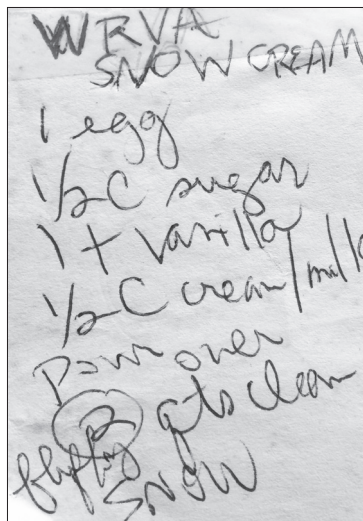 WRVA
SNOW CREAM
1 egg
1/2 C sugar
1 t vanilla
1/2 C cream/milk
Pour over
8 qts clean
fluffy
SNOW